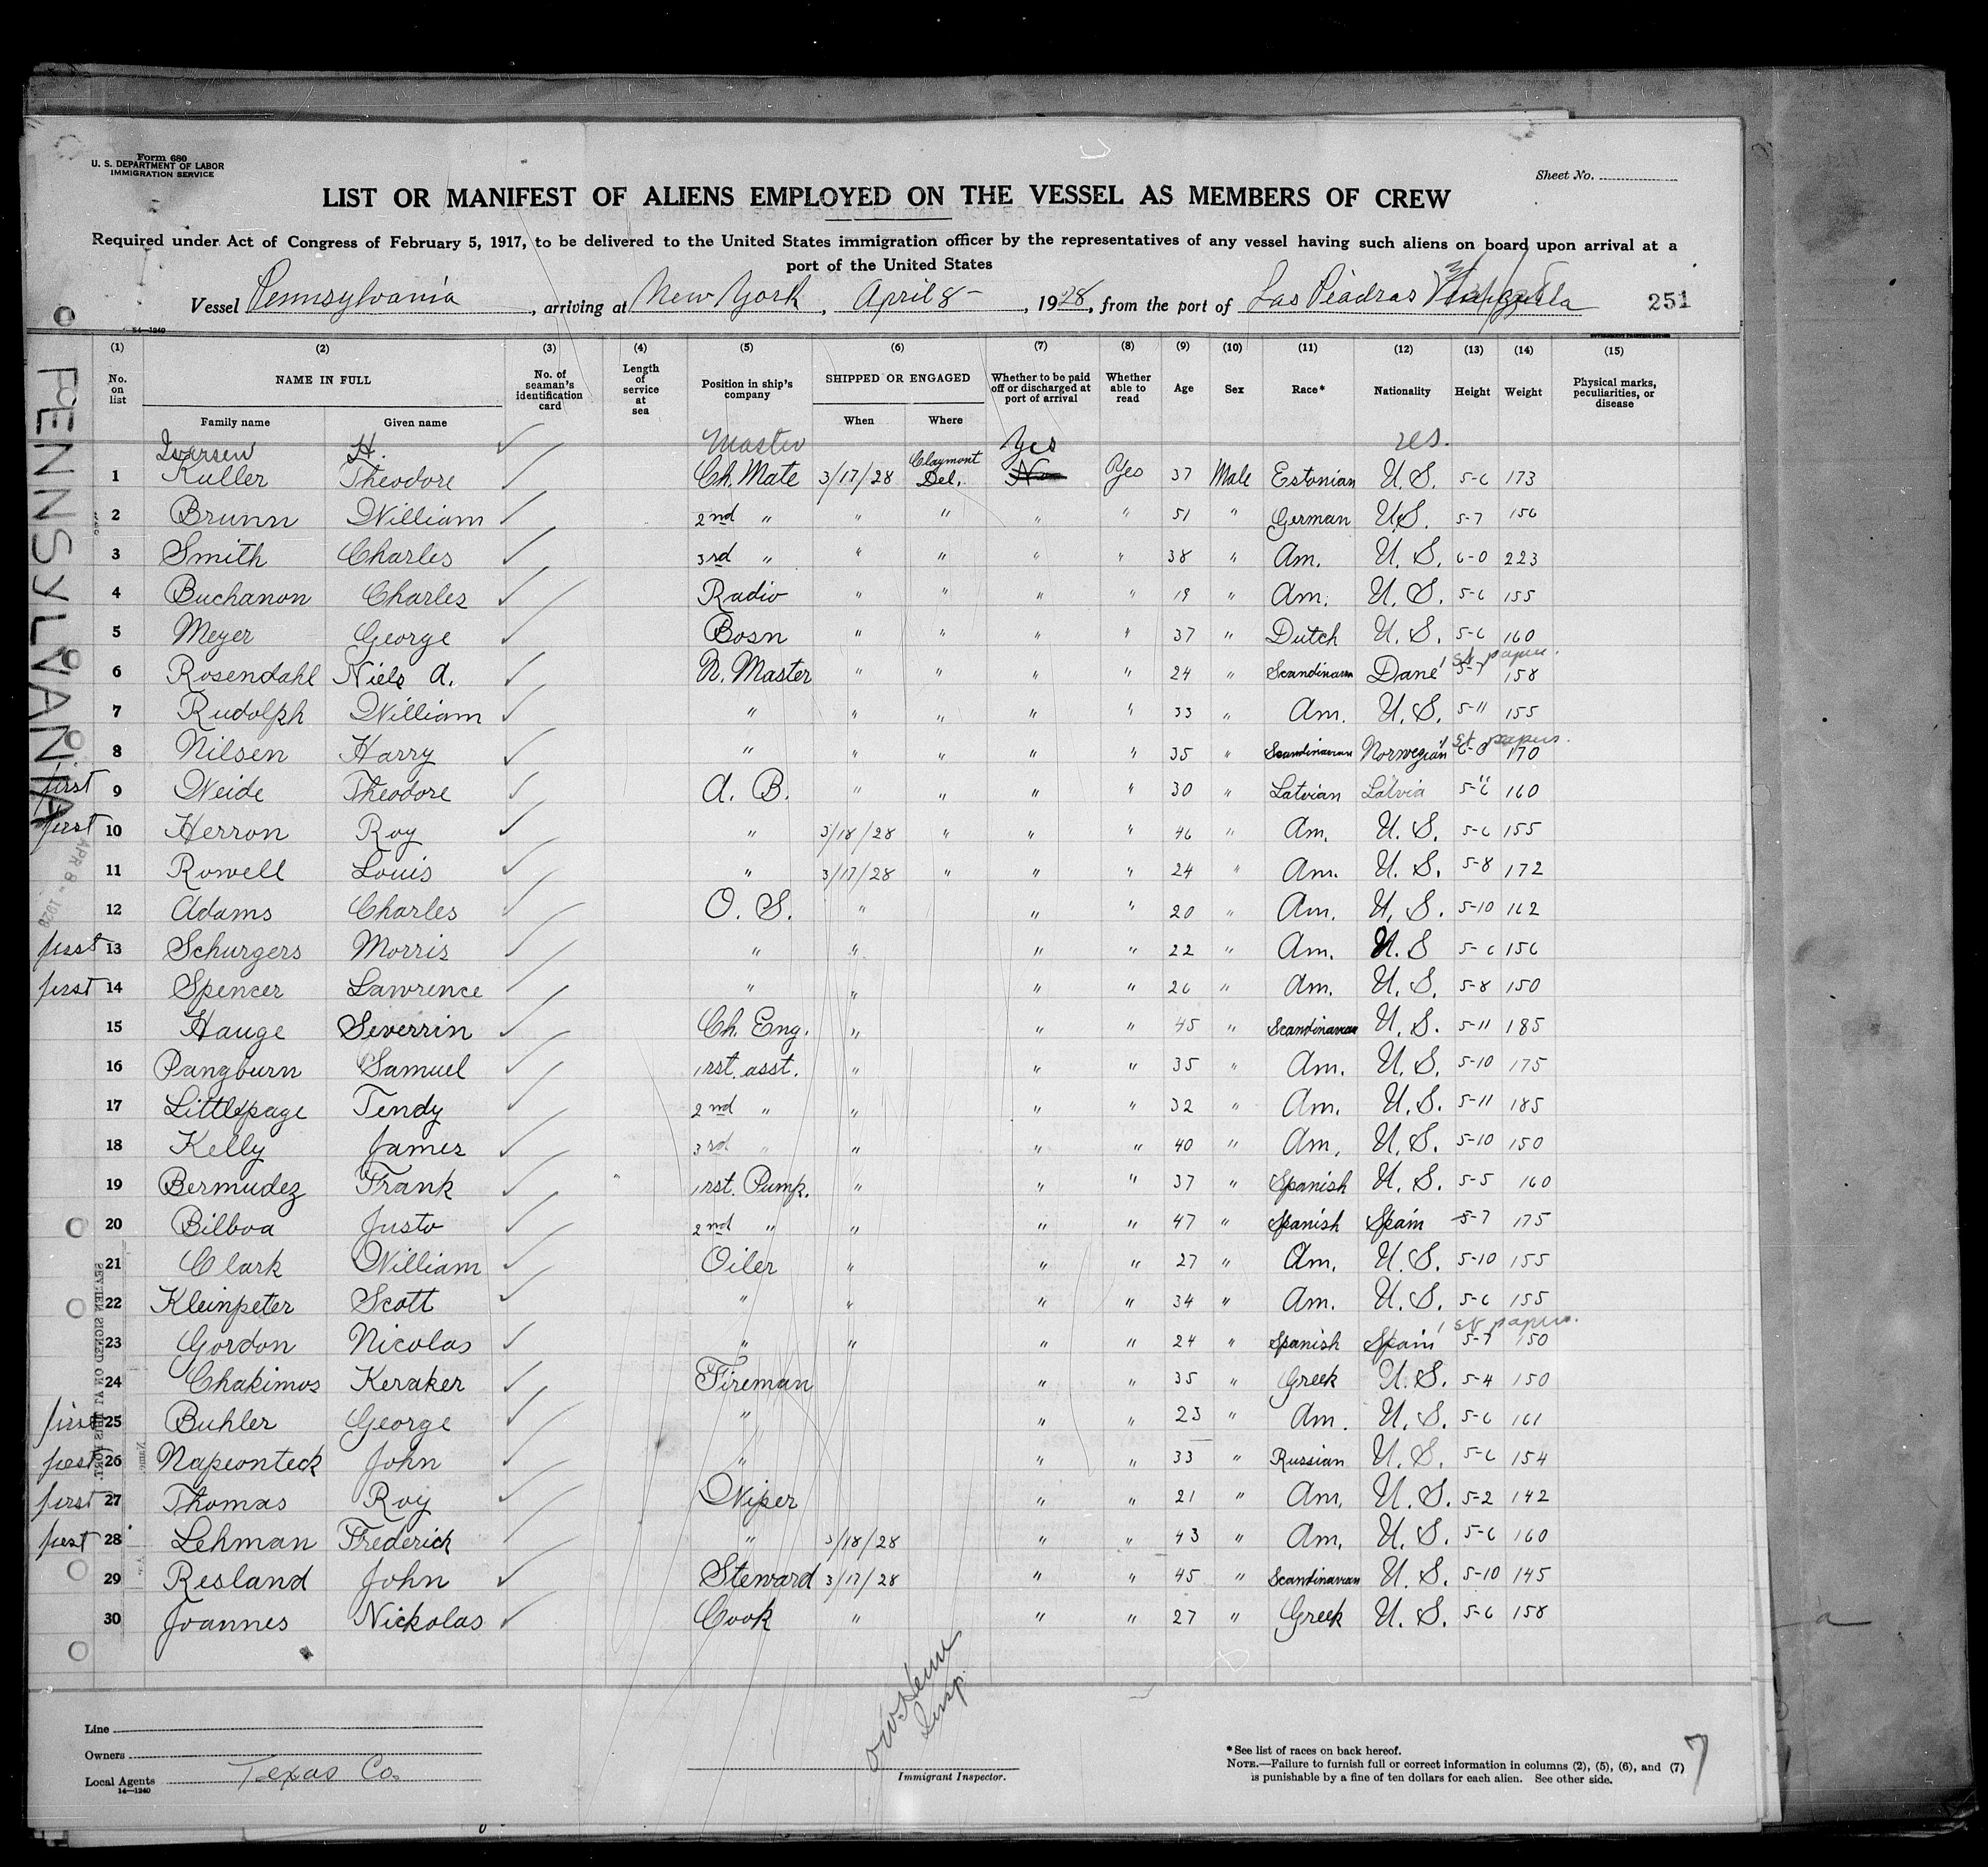 Form 680
U. S. DEPARTMENT OF LABOR
IMMIGRATION SERVICE
Sheet No.
LIST OR MANIFEST OF ALIENS EMPLOYED ON THE VESSEL AS MEMBERS OF CREW
Required under Act of Congress of February 5, 1917, to be delivered to the United States immigration officer by the representatives of any vessel having such aliens on board upon arrival at a
port of the United States
Vessel Pennsylvania, arriving at New York, April 8 -, 1928, from the port of Las Piadras Venezuela 251
PENNSYLVANIA
APR 8 - 1928
(1) (2) (3) (4) (5) (6) (7) (8) (9) (10) (11) (12) (13) (14) (15)
No. on list NAME IN FULL Family name Given name No. of seaman's identification card Length of service at sea Position in ship's company SHIPPED OR ENGAGED When Where Whether to be paid off or discharged at port of arrival Whether able to read Age Sex Race* Nationality Height Weight Physical marks, peculiarities, or disease
Iversen H. ✓ Master Yes U.S.
1 Kuller Theodore ✓ Ch. Mate 3/17/28 Claymont Del. No Yes 37 Male Estonian U.S. 5-6 173
2 Brunn William ✓ 2nd " " " " " 51 " German U.S. 5-7 156
3 Smith Charles ✓ 3rd " " " " " 38 " Am. U.S. 6-0 223
4 Buchanon Charles ✓ Radio " " " " 19 " Am. U.S. 5-6 155
5 Meyer George ✓ Bosn " " " " 37 " Dutch U.S. 5-6 160
1st papers.
6 Rosendahl Niels A. ✓ Q. Master " " " " 24 " Scandinavn Dane 5-7 158
7 Rudolph William ✓ " " " " " 33 " Am. U.S. 5-11 155
1st papers.
8 Nilsen Harry ✓ " " " " " 35 " Scandinavian Norwegian 6-0 170
first 9 Weide Theodore ✓ A. B. " " " " 30 " Latvian Latvia 5-6 160
first 10 Herron Roy ✓ " 3/18/28 " " " 46 " Am. U.S. 5-6 155
11 Rowell Louis ✓ " 3/17/28 " " " 24 " Am. U.S. 5-8 172
12 Adams Charles ✓ O. S. " " " 20 " Am. U.S. 5-10 162
first 13 Schurgers Morris ✓ " " " " 22 " Am. U.S 5-6 156
first 14 Spencer Lawrence ✓ " " " " 26 " Am. U.S. 5-8 150
15 Hauge Severrin ✓ Ch. Eng. " " " 45 " Scandinavian U.S. 5-11 185
16 Pangburn Samuel ✓ 1rst. asst. " " " 35 " Am. U.S. 5-10 175
17 Littlepage Tendy ✓ 2nd " " " " 32 " Am. U.S. 5-11 185
18 Kelly James ✓ 3rd " " " " 40 " Am. U.S. 5-10 150
19 Bermudez Frank ✓ 1rst. Pump. " " " 37 " Spanish U.S. 5-5 160
20 Bilboa Justo ✓ 2nd " " " " 47 " Spanish Spain 5-7 175
21 Clark William ✓ Oiler " " " 27 " Am. U.S. 5-10 155
22 Kleinpeter Scott ✓ " " " " 34 " Am. U.S. 5-6 155
1st papers.
23 Gordon Nicolas ✓ " " " " 24 " Spanish Spain 5-7 150
24 Chakimos Keraker ✓ Fireman " " 35 " Greek U.S. 5-4 150
first 25 Buhler George ✓ " " " 23 " Am. U.S. 5-6 161
first 26 Napeonteck John ✓ " " " 33 " Russian U.S. 5-6 154
first 27 Thomas Roy ✓ Wiper " " 21 " Am. U.S. 5-2 142
first 28 Lehman Frederick ✓ " 3/18/28 " " 43 " Am. U.S. 5-6 160
29 Resland John ✓ Steward 3/17/28 " " 45 " Scandinavian U.S. 5-10 145
30 Joannes Nickolas ✓ Cook " " " 27 " Greek U.S. 5-6 158
Insp.
Line
Owners
Local Agents Texas Co.
14—1240
Immigrant Inspector.
*See list of races on back hereof.
NOTE.—Failure to furnish full or correct information in columns (2), (5), (6), and (7)
is punishable by a fine of ten dollars for each alien. See other side.
7